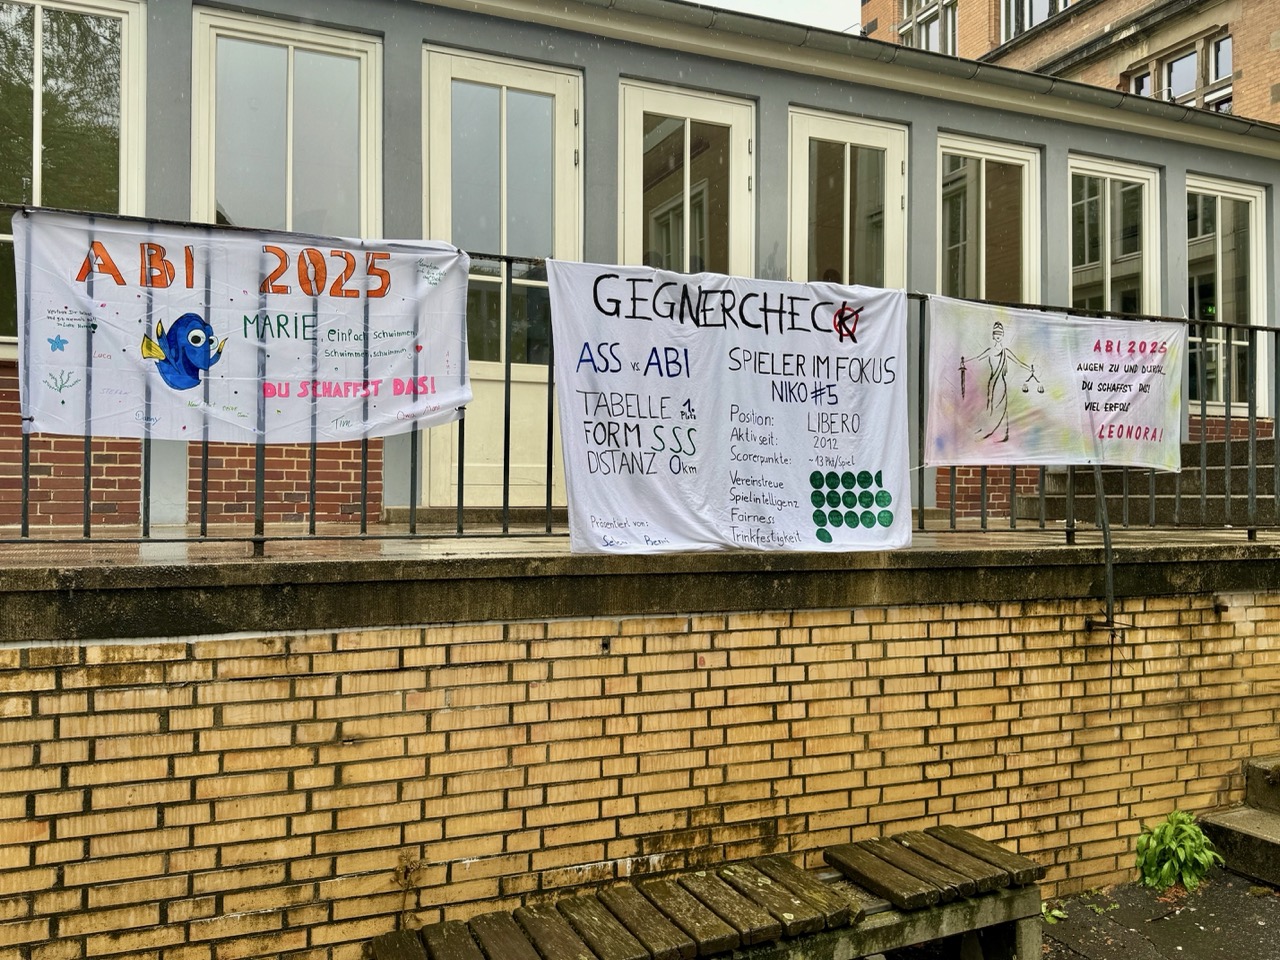 ABI 2025
MARIE, einfach schwimmen
schwimmen, schwimmen
DU SCHAFFST DAS!
Luca
Danny
Tim
GEGNERCHECK
ASS vs. ABI
TABELLE 1. Platz
FORM SSS
DISTANZ 0km
Präsentiert von:
SPIELER IM FOKUS
NIKO #5
Position: LIBERO
Aktiv seit: 2012
Scorerpunkte: ~13 Pkt/Spiel
Vereinstreue
Spielintelligenz
Fairness
Trinkfestigkeit
ABI 2025
AUGEN ZU UND DURCH,
DU SCHAFFST DAS!
VIEL ERFOLG
LEONORA!